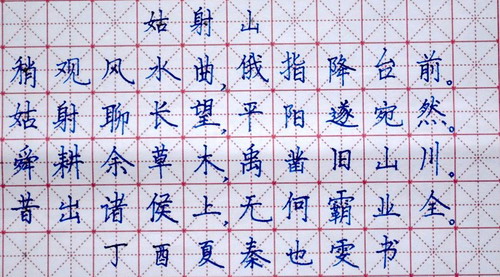 姑射山
稍观风水曲,俄指降台前。
姑射聊长望,平阳遂宛然。
舜耕余草木,禹凿旧山川。
昔出诸侯上,无何霸业全。
丁酉夏秦也雯书